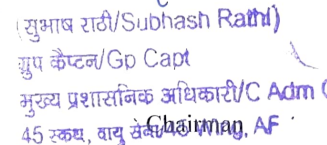 (सुभाष राठी/Subhash Rathi)
ग्रुप कैप्टन/Gp Capt
मुख्य प्रशासनिक अधिकारी/C Adm
45 स्कंध, वायु Chairman, AF